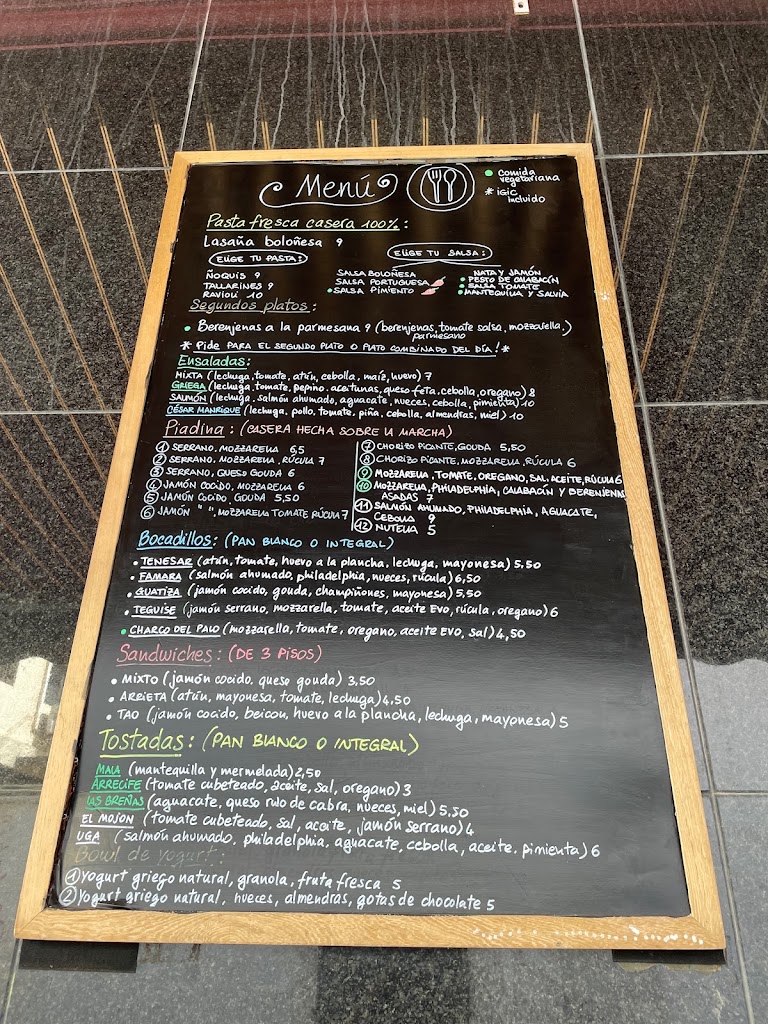 Menú
• comida vegetariana
* IGIC incluido
Pasta fresca casera 100% :
Lasaña boloñesa 9
ELIGE TU PASTA:
ELIGE TU SALSA:
ÑOQUIS 9
TALLARINES 9
RAVIOLI 10
SALSA BOLOÑESA
SALSA PORTUGUESA
• SALSA PIMIENTO
NATA Y JAMÓN
• PESTO DE CALABACÍN
• SALSA TOMATE
• MANTEQUILLA Y SALVIA
Segundos platos :
• Berenjenas a la parmesana 9 (berenjenas, tomate salsa, mozzarella,
parmesano)
* Pide PARA EL SEGUNDO PLATO O PLATO COMBINADO DEL DÍA! *
Ensaladas:
MIXTA (lechuga, tomate, atún, cebolla, maíz, huevo) 7
GRIEGA (lechuga, tomate, pepino, aceitunas, queso feta, cebolla, oregano) 8
SALMÓN (lechuga, salmón ahumado, aguacate, nueces, cebolla, pimienta) 10
CÉSAR MANRIQUE (lechuga, pollo, tomate, piña, cebolla, almendras, miel) 10
Piadina : (CASERA HECHA SOBRE LA MARCHA)
1 SERRANO, MOZZARELLA 6,5
2 SERRANO, MOZZARELLA, RÚCULA 7
3 SERRANO, QUESO GOUDA 6
4 JAMÓN COCIDO, MOZZARELLA 6
5 JAMÓN COCIDO, GOUDA 5,50
6 JAMÓN " ", MOZZARELLA TOMATE RÚCULA 7
7 CHORIZO PICANTE, GOUDA 5,50
8 CHORIZO PICANTE, MOZZARELLA, RÚCULA 6
9 MOZZARELLA, TOMATE, OREGANO, SAL, ACEITE, RÚCULA 6
10 MOZZARELLA, PHILADELPHIA, CALABACÍN Y BERENJENAS
ASADAS 7
11 SALMÓN AHUMADO, PHILADELPHIA, AGUACATE,
CEBOLLA 9
12 NUTELLA 5
Bocadillos : (PAN BLANCO O INTEGRAL)
• TENESAR (atún, tomate, huevo a la plancha, lechuga, mayonesa) 5,50
• FAMARA (salmón ahumado, philadelphia, nueces, rúcula) 6,50
• GUATIZA (jamón cocido, gouda, champiñones, mayonesa) 5,50
• TEGUISE (jamón serrano, mozzarella, tomate, aceite EVO, rúcula, oregano) 6
• CHARCO DEL PALO (mozzarella, tomate, oregano, aceite EVO, sal) 4,50
Sandwiches : (DE 3 PISOS)
• MIXTO (jamón cocido, queso gouda) 3,50
• ARRIETA (atún, mayonesa, tomate, lechuga) 4,50
• TAO (jamón cocido, beicon, huevo a la plancha, lechuga, mayonesa) 5
Tostadas : (PAN BLANCO O INTEGRAL)
MALA (mantequilla y mermelada) 2,50
ARRECIFE (tomate cubeteado, aceite, sal, oregano) 3
LAS BREÑAS (aguacate, queso rulo de cabra, nueces, miel) 5,50
EL MOJON (tomate cubeteado, sal, aceite, jamón serrano) 4
UGA (salmón ahumado, philadelphia, aguacate, cebolla, aceite, pimienta) 6
Bowl de yogurt :
1 Yogurt griego natural, granola, fruta fresca 5
2 Yogurt griego natural, nueces, almendras, gotas de chocolate 5